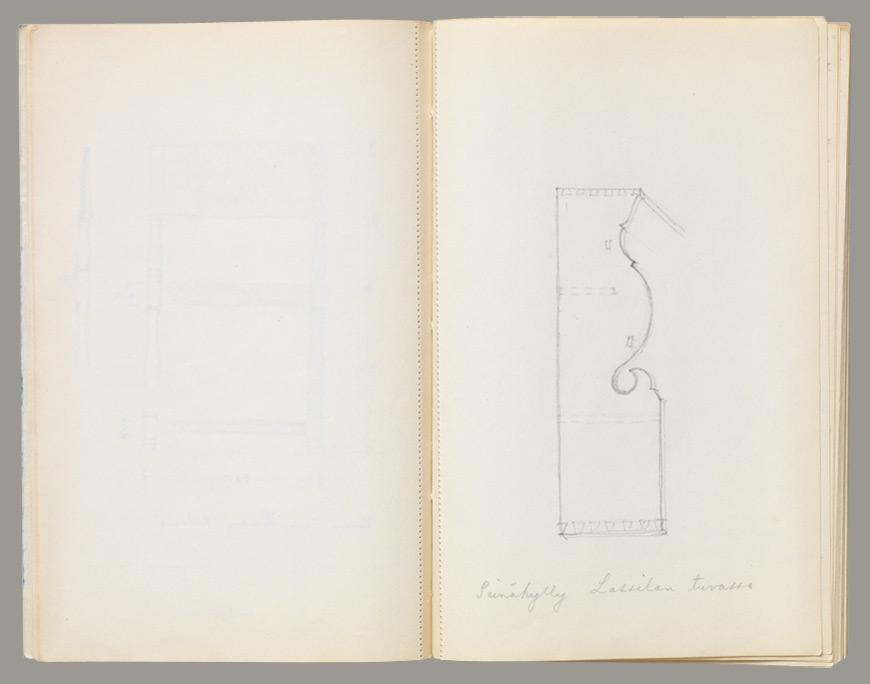 Seinähylly Lassilan tuvassa